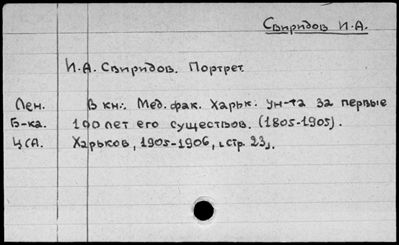 Свиридов И.А.
И.А. Свиридов. Портрет.
Лен. В кн.: Мед. фак. Харьк. ун-та за первые
Б-ка. 100 лет его существов. (1805-1905).
ЦСА. Харьков, 1905-1906, [стр. 23].